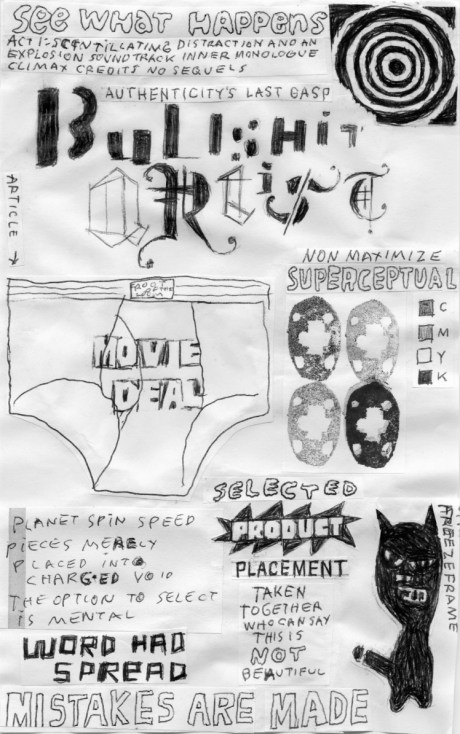 SEE WHAT HAPPENS
ACT I: SCINTILLATING DISTRACTION AND AN
EXPLOSION SOUNDTRACK INNER MONOLOGUE
CLIMAX CREDITS NO SEQUELS
AUTHENTICITY'S LAST GASP
BULLSHIT
ARTIST
ARTICLE
FROOT
OF THE
MOVIE
DEAL
NON MAXIMIZE
SUPERCEPTUAL
C
M
Y
K
SELECTED
PRODUCT
PLACEMENT
TAKEN
TOGETHER
WHO CAN SAY
THIS IS
NOT
BEAUTIFUL
FREEZEFRAME
PLANET SPIN SPEED
PIECES MERELY
PLACED INTO
CHARGED VOID
THE OPTION TO SELECT
IS MENTAL
WORD HAD
SPREAD
MISTAKES ARE MADE